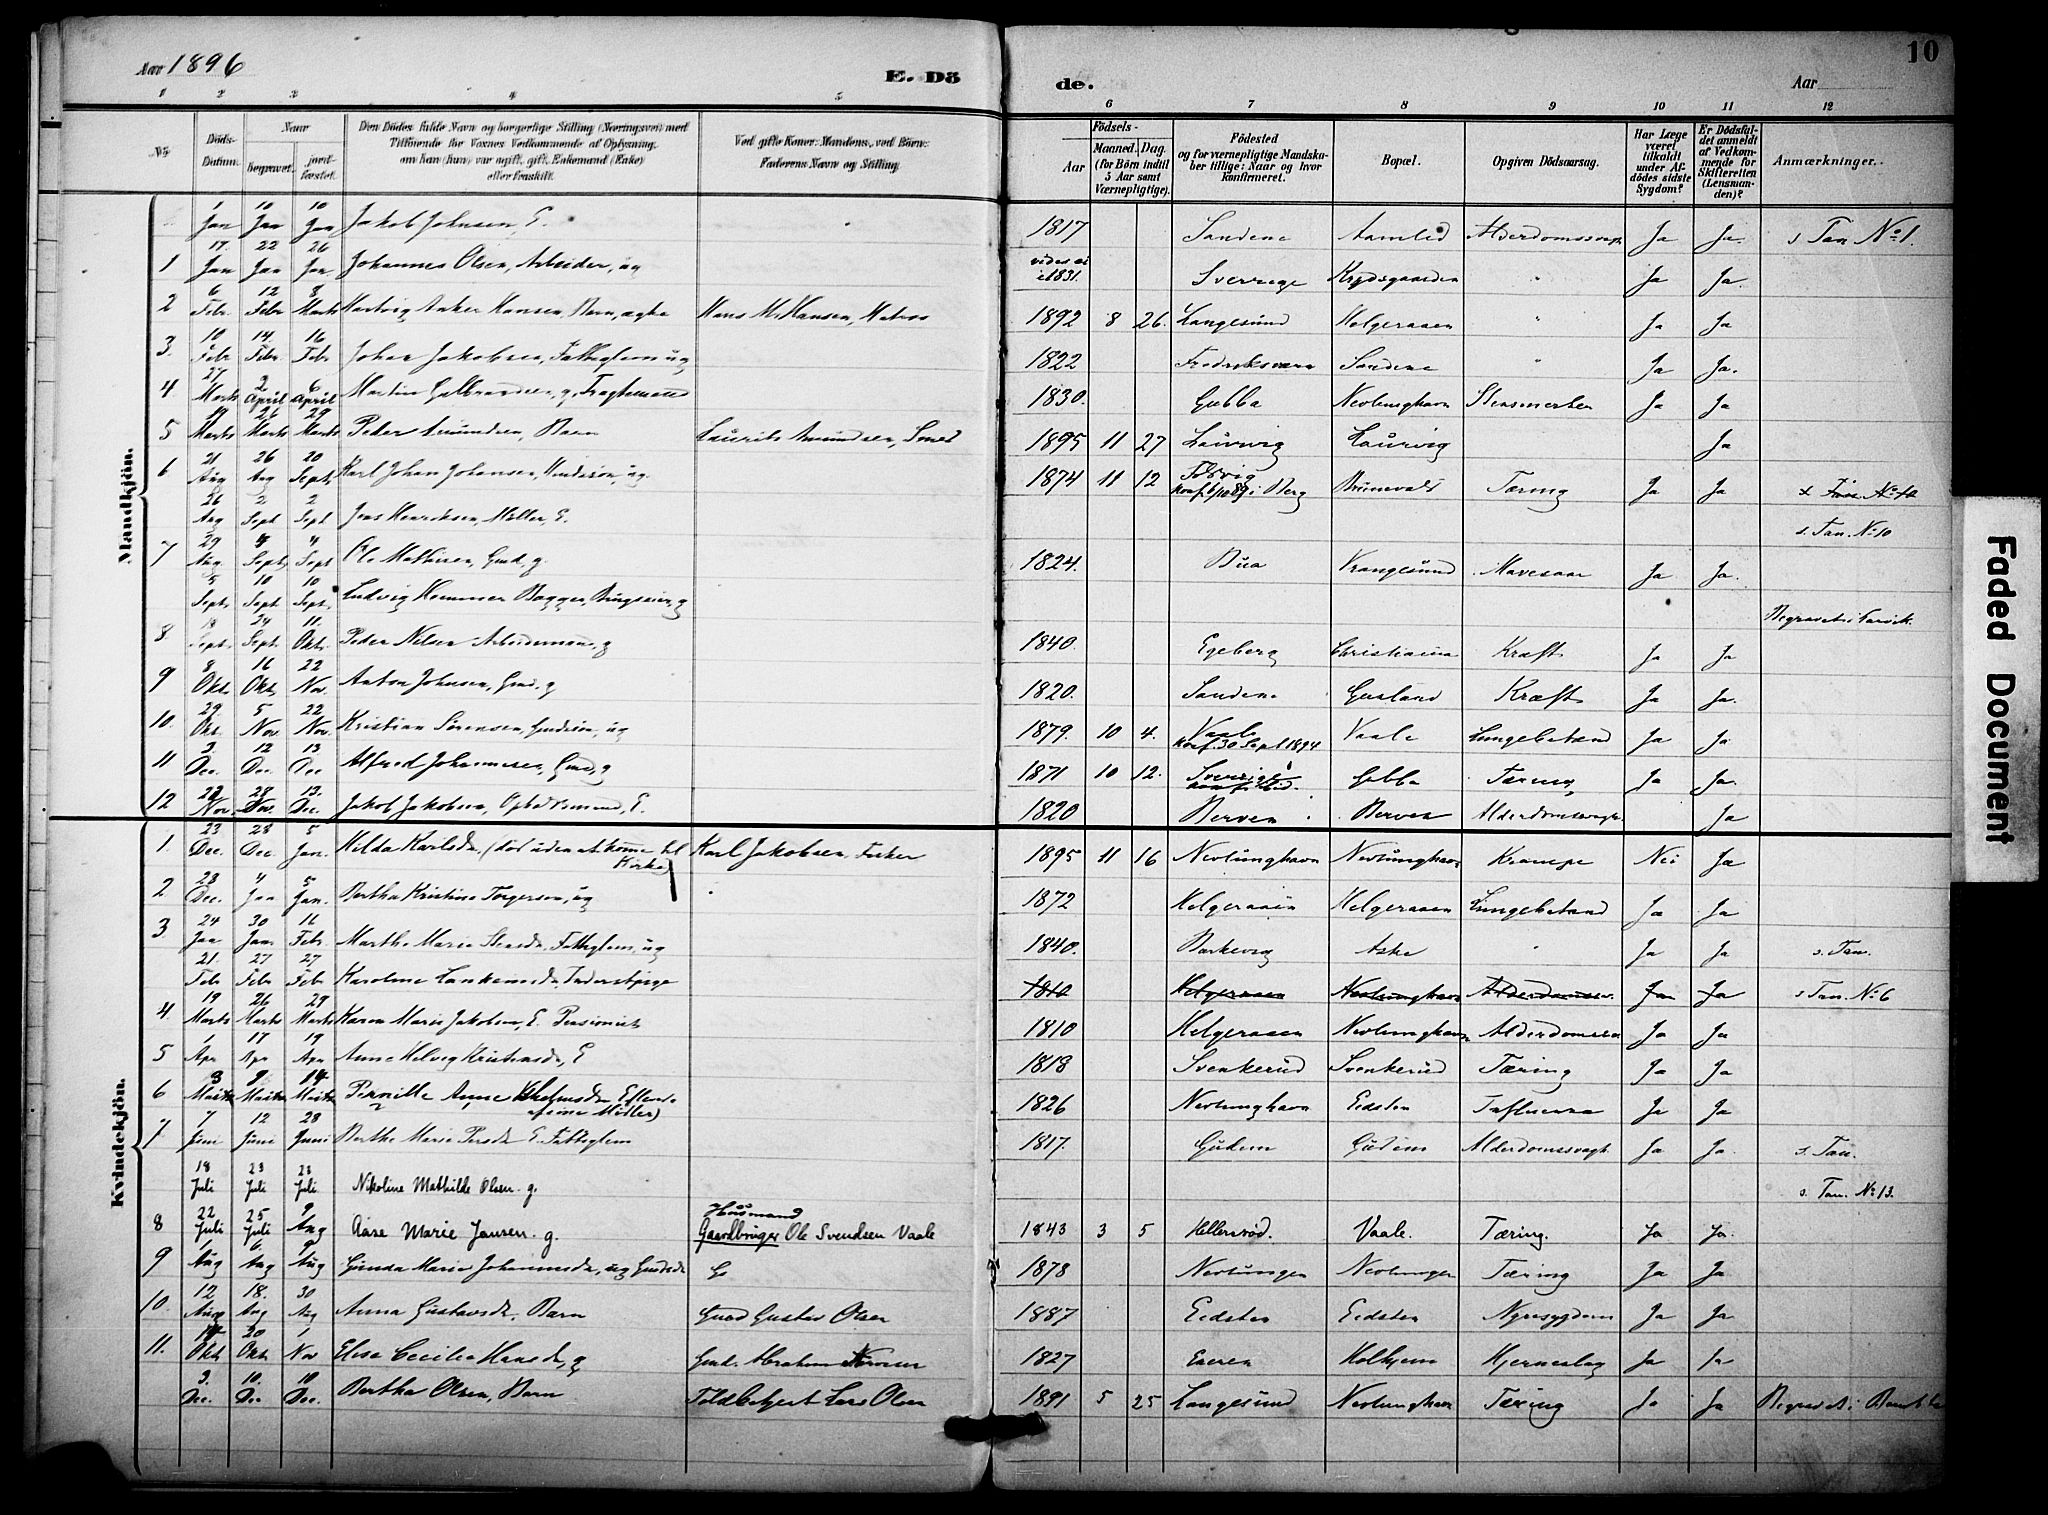 Aar 1896
E. Dö
de.
Aar
10
1 2 3 4 5 6 7 8 9 10 11 12
No.
Döds-Datum.
Naar
begravet.
jord-fæstet.
Den Dödes fulde Navn og borgerlige Stilling (Næringsvei) med
Tilföiende for Voxnes Vedkommende af Oplysning,
om han (hun) var ugift, gift, Enkemand (Enke)
eller fraskilt.
Ved gifte Koner: Mandens, ved Börn:
Faderens Navn og Stilling.
Födsels-
Aar
Maaned. Dag.
(for Börn indtil
5 Aar samt
Værnepligtige).
Födested
og for værnepligtige Mandska-
ber tillige: Naar og hvor
konfirmeret.
Bopæl.
Opgiven Dödsaarsag.
Har Læge
været
tilkaldt
under Af-
dödes sidste
Sygdom?
Er Dödsfal-
det anmeldt
af Vedkom-
mende for
Skifteretten
(Lensman-
den)?
Anmærkninger.
Mandkjön.
1 Jan 10 Jan 10 Jan Jakob Johnsen, E. 1817 Sandene Aamlid Alderdomssvagh Ja Ja. s Tan No 1.
1 17 Jan 22 Jan 26 Jan Johannes Olsen, Arbeider, ug 1831. Sverrige Krydsgaarden " Ja Ja.
2 6 Febr 12 Febr 8 Marts Hartvig Anker Hansen, Barn, ægte Hans M. Hansen, Matros 1892 8 26. Langesund Helgeraaen " Ja Ja
3. 10 Febr 14. Febr. 16 Febr. Johan Jakobsen, Fattiglem ug 1822 Fredriksværn Sandene " Ja Ja.
4 27 Marts 2 April 6 April Martin Gulbrandsen, g. Fragtemand 1830. Gubba Nevlunghavn Ja Ja
5 19 Marts 26 Marts 29 Marts Peder Amundsen, Barn Laurits Amundsen, Smed 1895 11 27 Laurvig Laurvig Ja
6 21 Aug 26 Aug 20 Sept. Karl Johan Johansen, ug. 1874 11 12 i Berg Brunevald Tæring Ja Ja
26 Aug 2 Sept 2 Sept Jens Henriksen Möller, E. s. Tan. No 10
7 29 Aug. 4 Sept. 4 Sept Ole Mathisen, Gmd, g. 1824. Bua Vrangesund Mavesaar Ja Ja.
5 Sept. 10 Sept. 10 Sept. Ludvig Hemmer Bagger, g Begravet i Larvik.
8. Sept. 24 Sept. 11. Okt. Peder Nilsen Arbeidsmand, g 1840. Egeberg Christiania Kræft Ja Ja
9 8 Okt. 16 Okt. 22 Nov. Anton Johnsen, Gmd, g 1820. Sandene Gusland Kræft Ja Ja.
10. 29 Okt. 5 Nov. 22 Nov. Kristian Sörensen, Gmdssön, ug 1879. 10 4. Vaale konf. 30 Sept 1894 Vaale Lungebetænd Ja Ja
11 3. Dec. 12 Dec. 13 Dec Alfred Johannesen, Gmd, g 1871 10 12. Sverrige Gubba Tæring Ja Ja.
12 22 Nov. 28 Nov. 13. Dec. Jakob Jakobsen, E. 1820 Berven Berven Alderdomssvagh. Ja
Kvindekjön.
1. 23 Dec. 28 Dec. 5 Jan. Hilda Karlsdr, (död uden at komme til Kirke) Karl Jakobsen, Fisker 1895 11 16 Nevlunghavn Nevlunghavn Krampe Nei Ja
2 28 Dec. 4 Jan 5 Jan. Bertha Kristine Torgersen, ug 1872 Helgeraaen Helgeraaen Lungebetænd Ja Ja
3. 24 Jan 30 Jan 16 Febr. Marthe Marie Stensdr, Fattiglem, ug 1840. Barkevig Aske " Ja Ja s. Tan.
21. Febr 27 Febr 27 Febr Karoline 1810 Helgeraaen Nevlunghavn Ja Ja s Tan. No 6
4. 19 Marts 26 Marts 29 Marts Karen Marie Jakobsen, E. Pensionist 1810 Helgeraaen Nevlunghavn Ja Ja
5 1 Apr 17 Apr 19 Apr Anne Helvig Kristensdr, E 1818 Svenkerud Svenkerud Tæring Ja Ja
6 3 9. 14 Pernille Anne Möller) 1826 Nevlunghavn Eidsten Influensa Ja Ja
7 7 Juni 12 Juni 28 Juni Berthe Marie Persdr E. Fattiglem 1817. Gudem Gudem Alderdomssvagh. Ja Ja. s. Tan.
18 Juli 23 Juli 23 Juli Nikoline Mathilde Olsen. g. s. Tan. No 13.
8 22 Juli 25 Juli 9 Aug Aase Marie Jansen. g. Husmand Gaardbruger Ole Svendsen Vaale 1843 3 5 Hellersröd. Vaale. Tæring. Ja Ja.
9 1 Aug 6. Aug 9 Aug Gunda Marie Johannesdr, ug 1878 Nevlungen Nevlungen Tæring Ja Ja
10. 12 Aug 18. Aug 30 Aug Anna Gustavsdr, Barn Gmd Gustav Olsen 1887 Eidsten Eidsten Nyresygdom Ja Ja
11. 14 Okt. 20 Okt. 1 Nov Elise Cecilie Hansdr, g Gmd. Abraham Iversen 1827 Hjerneslag Ja Ja
3. Dec. 10. Dec 10 Dec. Bertha Olsen, Barn Toldbetjent Lars Olsen 1891 5 25 Langesund Nevlunghavn Tæring Ja Ja Begravet i Bamble
Faded Document